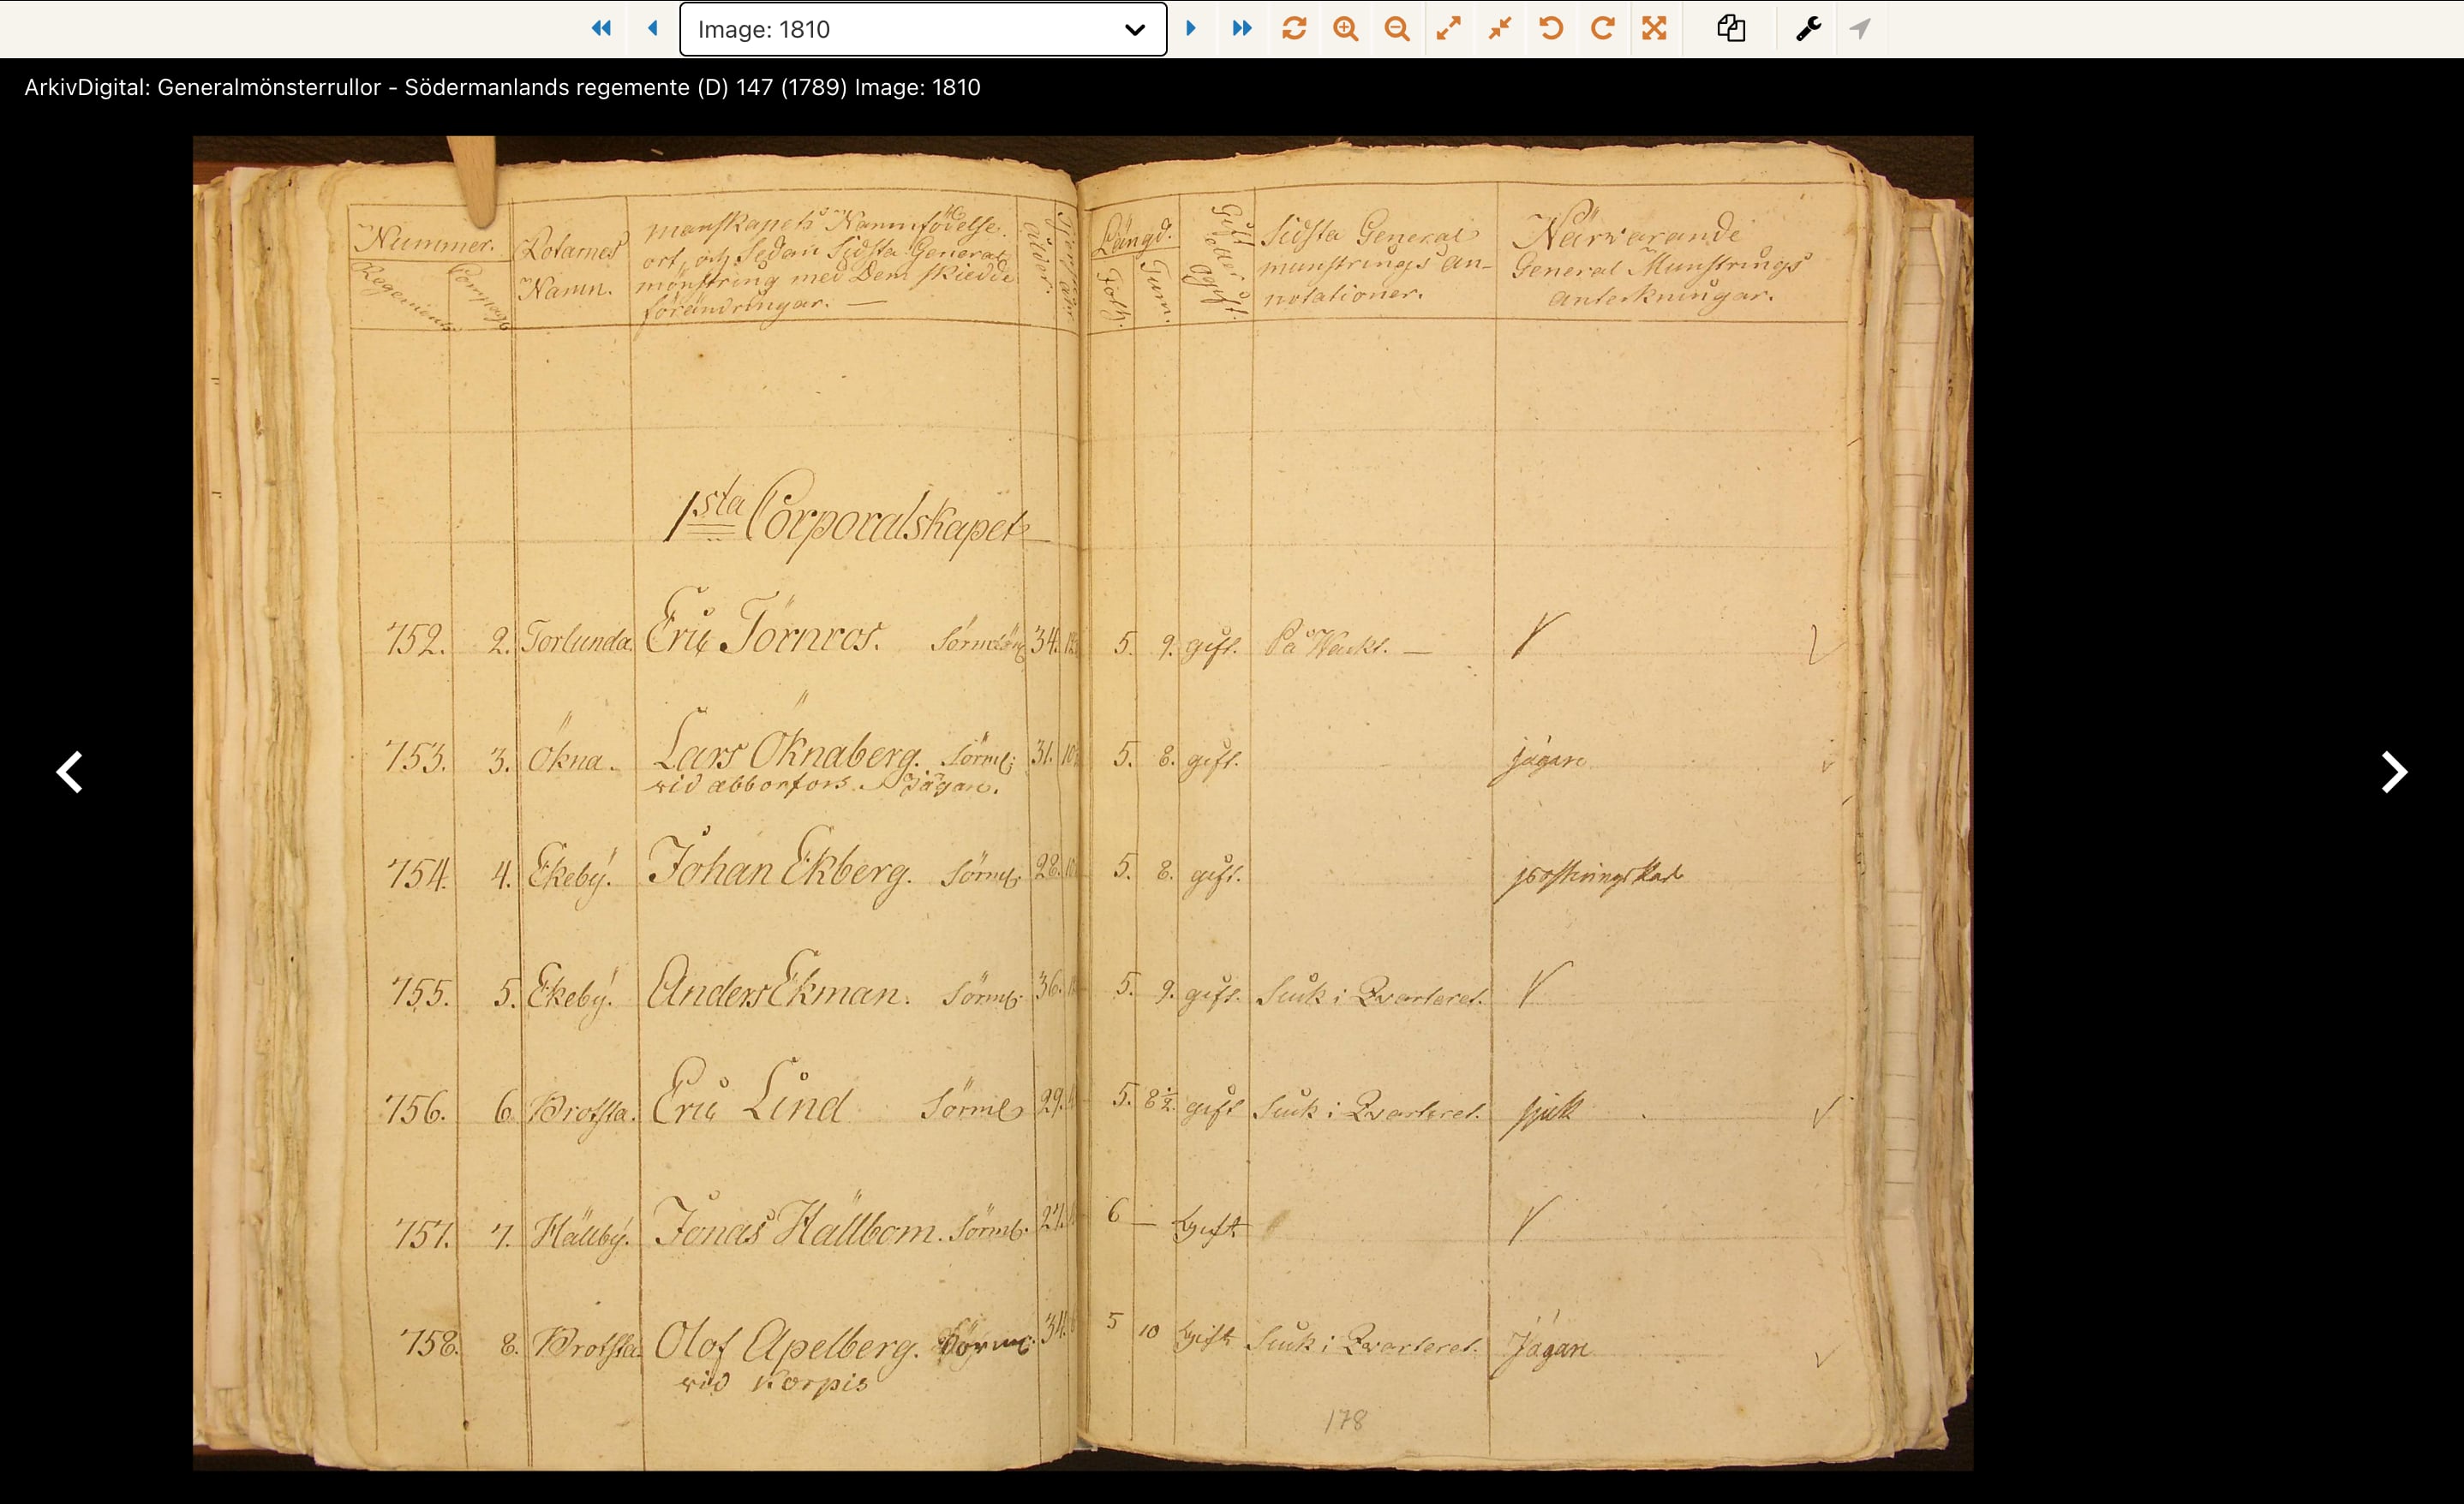 Image: 1810
ArkivDigital: Generalmönsterrullor - Södermanlands regemente (D) 147 (1789) Image: 1810
Nummer.
Regements
Compag:
Rotarnes
Namn.
manskapets Namn, födelse
ort, och Sedan Sidsta General
mönstring med Dem skiedde
förändringar. —
Ålder.
Längd.
Foth.
Tum.
Gift eller Ogift.
Sidsta General
munstrings an-
notationer.
Närvarande
General Munstrings
anterkningar.
1sta Corporalskapet
752. 2. Torlunda. Eric Törnros. 34. 5. 9. gift. På Wackt. —
753. 3. Ökna. Lars Öknaberg. Sörml: 31. 10 5. 8. gift. jägare
vid abborfors. Jägare.
754. 4. Ekeby. Johan Ekberg. Sörml: 28. 10 5. 8. gift.
755. 5. Ekeby. Anders Ekman. Sörml: 36. 5. 9. gift. Siuk i Qvarteret.
756. 6. Brotsta. Eric Lind Sörml 29. 5. 8½ gift Siuk i Qvarteret. sjuk
757. 7. Hällby. Jonas Hällbom. Sörml: 27. 6 — gift
758. 8. Brotsta Olof Apelberg. Sörml: 34. 5 10 gift Siuk i Qvarteret. Jägare
vid Korpis
178